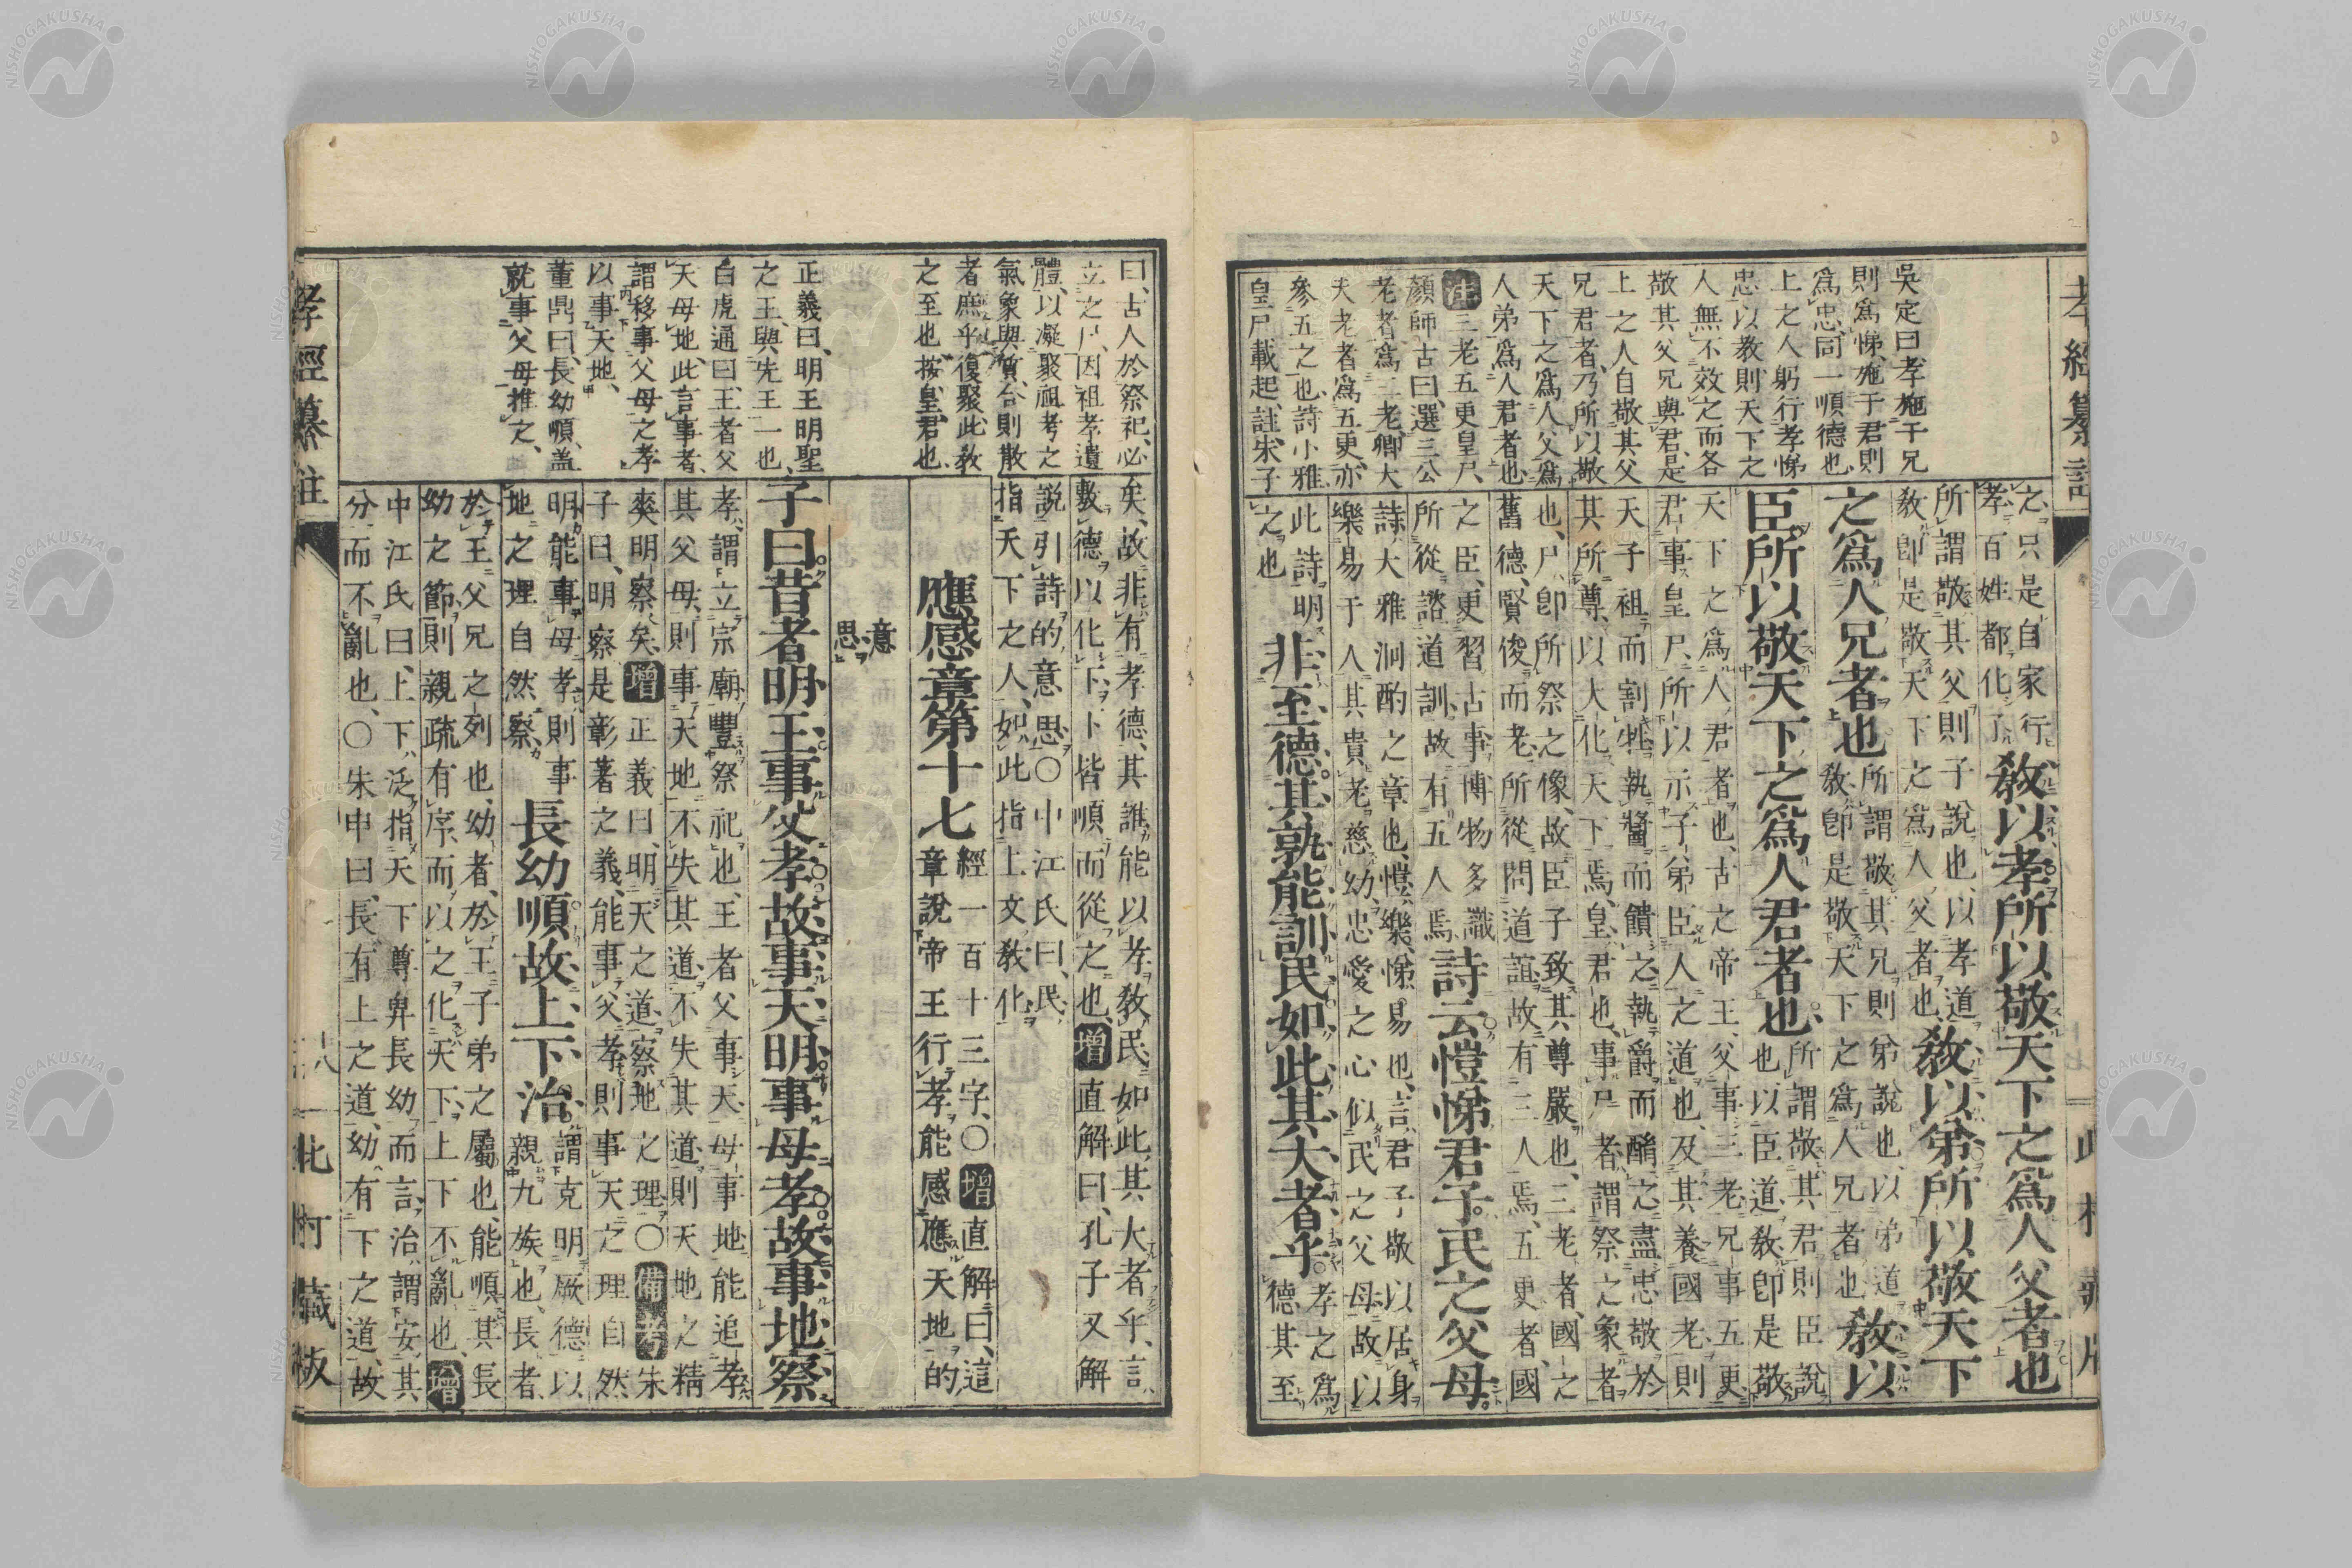 孝經纂註
吳定曰孝施于兄
則爲悌、施于君則
爲忠、同一順德也
上之人躬行孝悌
忠以教、則天下之
人無不效之而各
敬其父兄與君、是
上之人自敬其父
兄君者、乃所以敬
天下之爲人父爲
人弟爲人君者也
注三老五更皇尸
顏師古曰、選三公
老者爲三老、卿大
夫老者爲五更、亦
參五之也、詩小雅
皇尸載起、註、朱子
之、只是自家行
孝、百姓都化了
教以孝所以敬天下之爲人父者也
所謂敬其父、則子說也、以孝道
教、卽是敬天下之爲人父者也、
教以弟所以敬天下
之爲人兄者也
所謂敬其兄則弟說也、以弟道
教、卽是敬天下之爲人兄者也
教以
臣所以敬天下之爲人君者也
所謂敬其君則臣說
也、以臣道教、卽是敬
天下之爲人君者也、古之帝王、父事三老、兄事五更、
君事皇尸、所以示子弟臣人之道也、及其養國老、則
天子袒而割牲、執醬而饋之、執爵而酳之、盡忠敬於
其所尊、以大化天下焉、皇、君也、事尸者、謂祭之象者
也、尸、卽所祭之像、故臣子致其尊嚴也、三老者、國之
舊德、賢俊而老、所從問道誼、故有三人焉、五更者、國
之臣、更習古事、博物多識
所從諮道訓、故有五人焉、
詩云愷悌君子民之父母
詩、大雅泂酌之章也、愷、樂、悌、易也、言、君子敬以居身
樂易于人、其貴老慈幼、忠愛之心、似民之父母、故以
此詩明
之也
非至德其孰能訓民如此其大者乎
孝之爲
德、其至
曰、古人於祭祀、必
立之尸、因祖孝遺
體、以凝聚祖考之
氣象與質、合則散
者庶乎復聚、此敎
之至也、按、皇、君也、
正義曰、明王明聖
之王、與先王一也、
白虎通曰、王者父
天母地、此言事者、
謂移事父母之孝
以事天地、
董鼎曰、長幼順、蓋
就事父母推之、
矣、故非有孝德、其誰能以孝教民如此、其大者乎、言、
敷德以化下、下皆順而從之也、增直解曰、孔子又解
說引詩的意思〇中江氏曰、民、
指天下之人、如此指上文教化
應感章第十七
經一百十三字、〇增直解曰、這
章說帝王行孝能感應天地的
意
思
子曰昔者明王事父孝故事天明事母孝故事地察
孝、謂立宗廟豐祭祀也、王者父事天、母事地、能追孝
其父母、則事天地不失其道、不失其道、則天地之精
爽明察矣、增正義曰、明天之道、察地之理〇備考朱
子曰、明察是彰著之義、能事父孝則事天之理自然
明能事母孝則事
地之理自然察、
長幼順故上下治
謂克明厥德、以
親九族也、長者
於王父兄之列也、幼者、於王子弟之屬也、能順其長
幼之節、則親疏有序、而以之化天下、上下不亂也、增
中江氏曰、上下、泛指天下尊卑長幼而言、治、謂安其
分而不亂也、〇朱申曰、長有上之道、幼有下之道、故
孝經纂註
十八
此村藏板